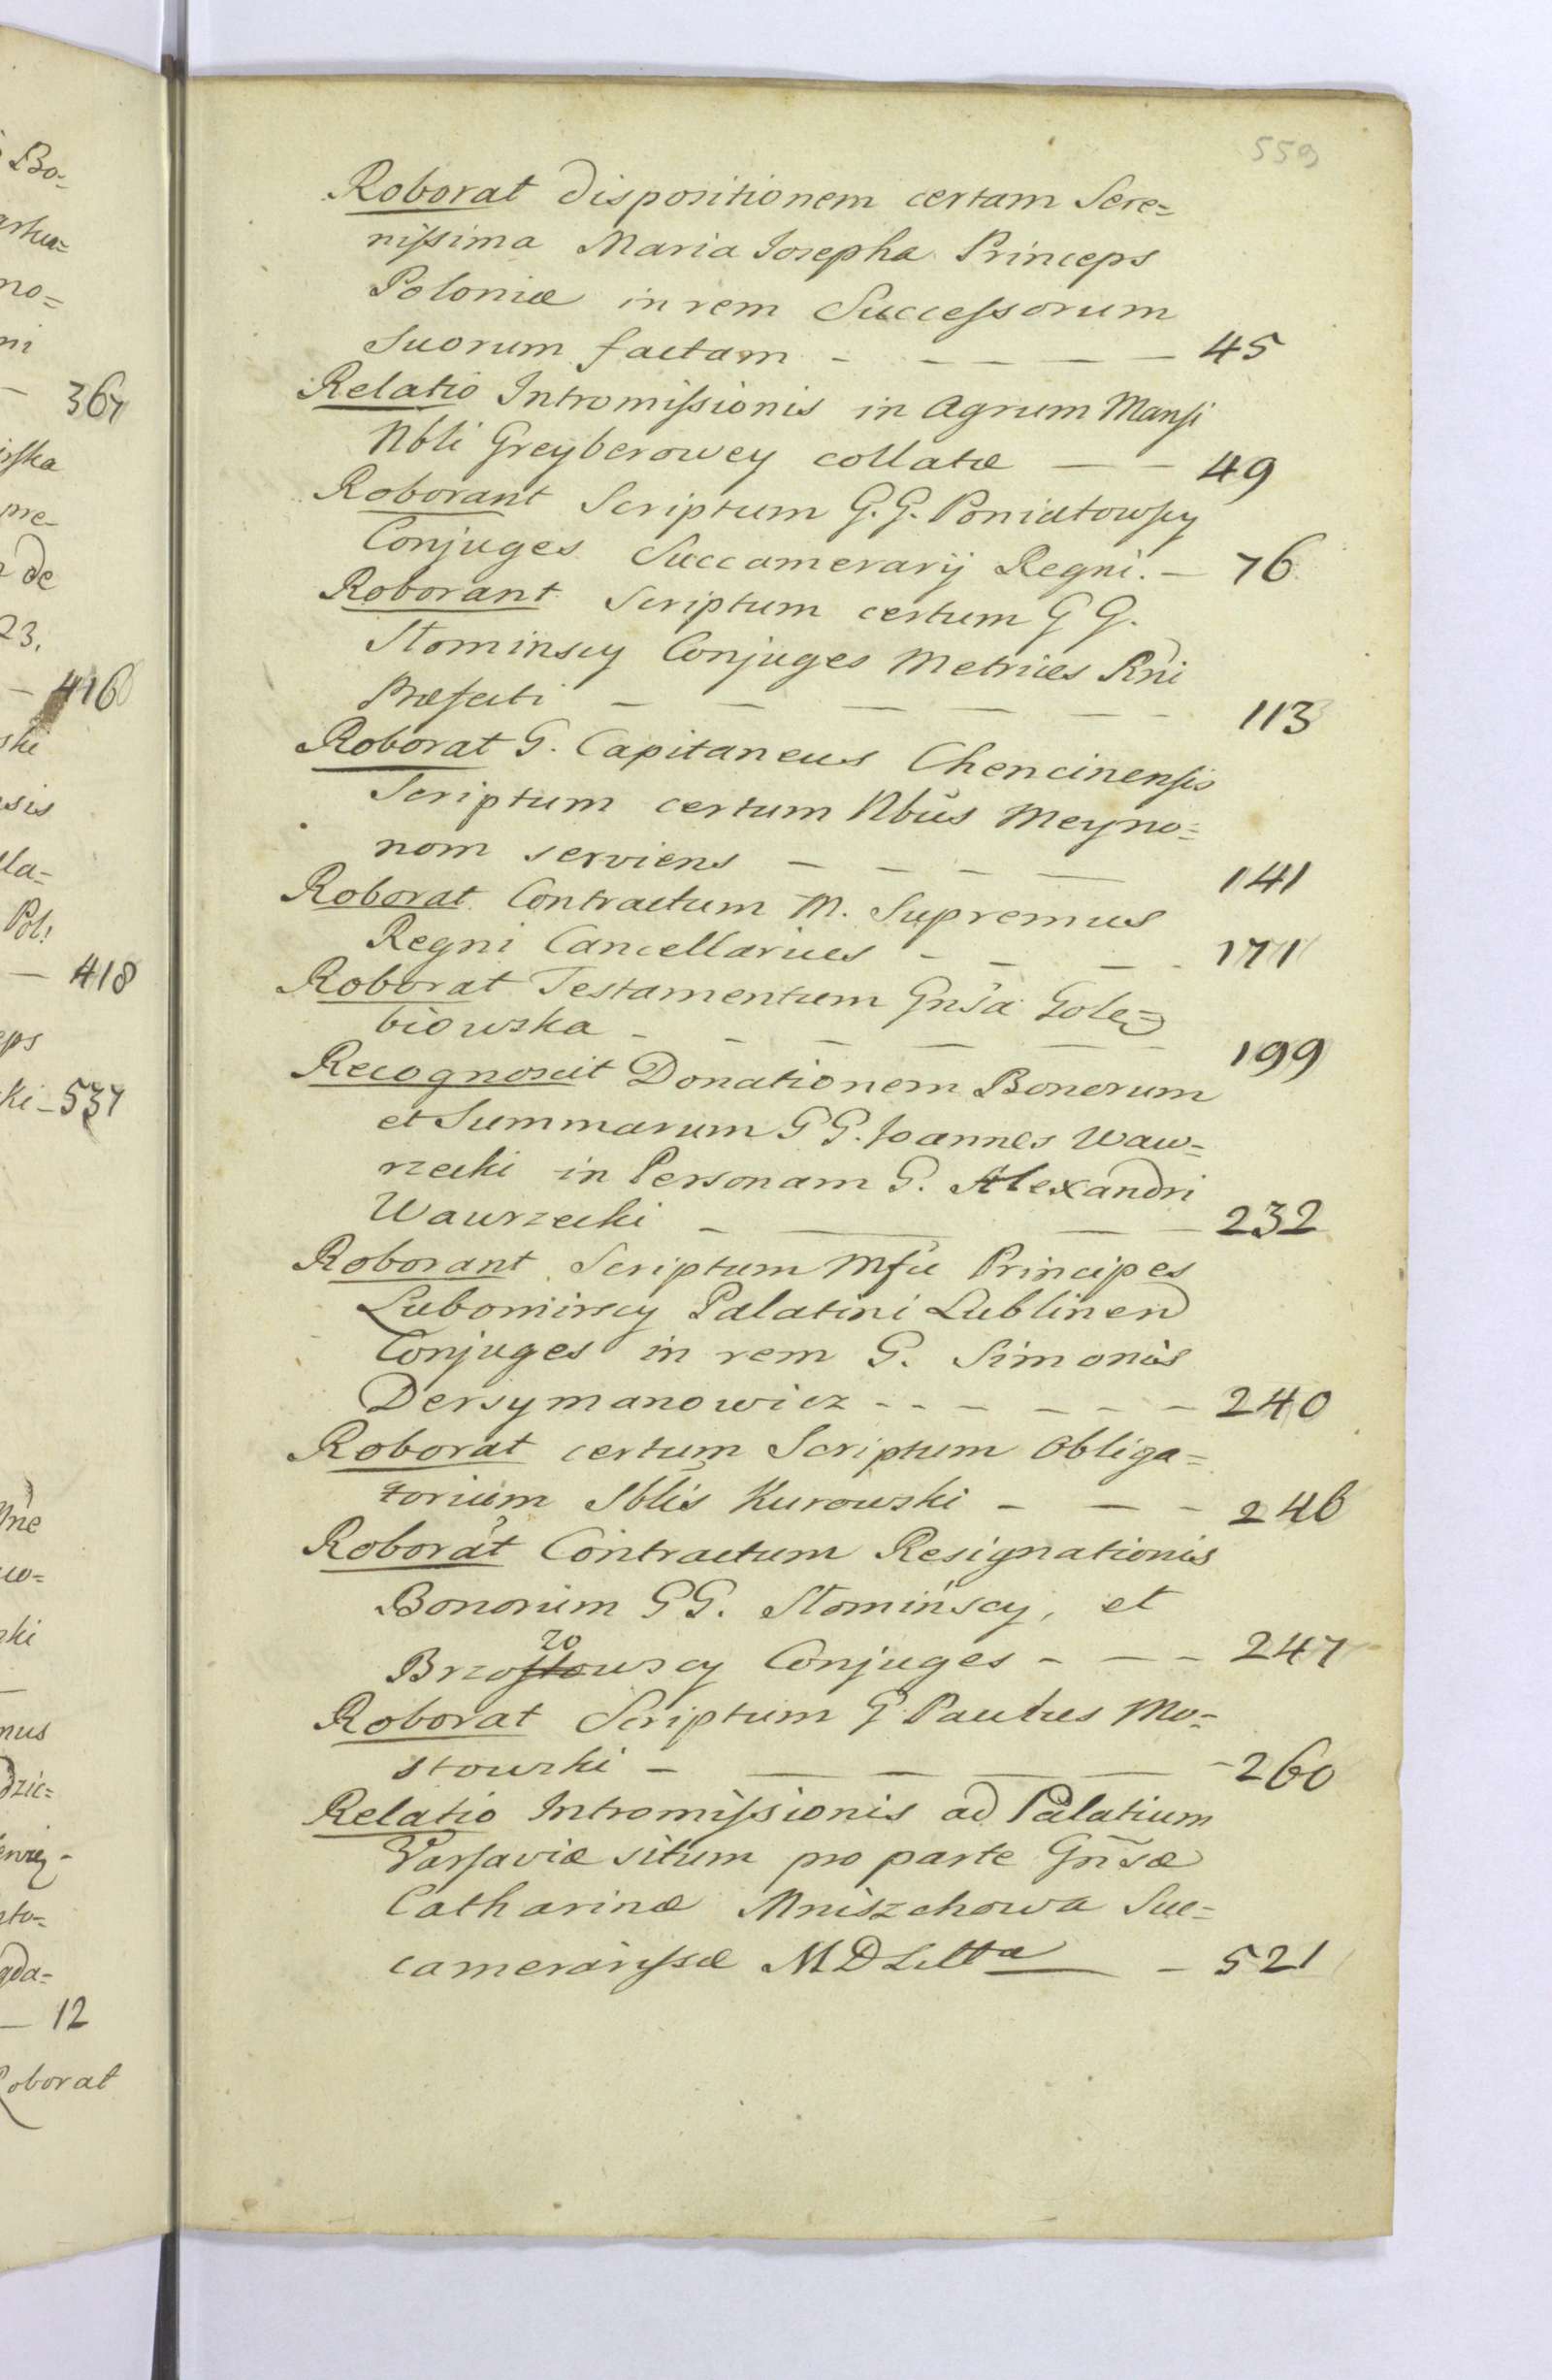 559
Roborat dispositionem certam Sere=
nissima Maria Josepha Princeps
Poloniæ in rem Successorum
Suorum factam - - - - - 45
Relatio Intromissionis in Agrum Mansi
Nbli Greyberowey collatæ - - 49
Roborant Scriptum G.G. Poniatowscy
Conjuges Succamerarij Regni. - 76
Roborant Scriptum certum G G.
Słominscy Conjuges Metrices Rni
Præfecti - - - - - 113
Roborat G. Capitaneus Chencinensis
Scriptum certum Nbüs Meyno=
nom serviens - - - - 141
Roborat Contractum M. Supremus
Regni Cancellarius - - - - 171
Roborat Testamentum Gnsa Gole=
biowska - - - - - - 199
Recognoscit Donationem Bonorum
et Summarum G G. Joannes Waw=
rzecki in Personam G. Alexandri
Wawrzecki - - - - 232
Roborant Scriptum Mfci Principes
Lubomirscy Palatini Lublinen
Conjuges in rem G. Simonis
Dersymanowicz - - - - - - 240
Roborat certum Scriptum Obliga=
torium Sblis Kurowski - - - 246
Roborat Contractum Resignationis
Bonorum GG. Słomińscy, et
zo
Brzostowscy Conjuges - - - 247
Roborat Scriptum G Paulus Mo=
stowski - - - - - - 260
Relatio Intromissionis ad Palatium
Varsaviæ situm pro parte Gnsæ
Catharinæ Mniszchowa Suc=
camerarissæ MDLitta - - 521
Bo=
no=
ni
- 367
pre-
de
23.
- 416
ski
sis
la=
Pol:
- 418
eps
ki - 537
ki
mus
dzic=
gda=
- 12
Roborat